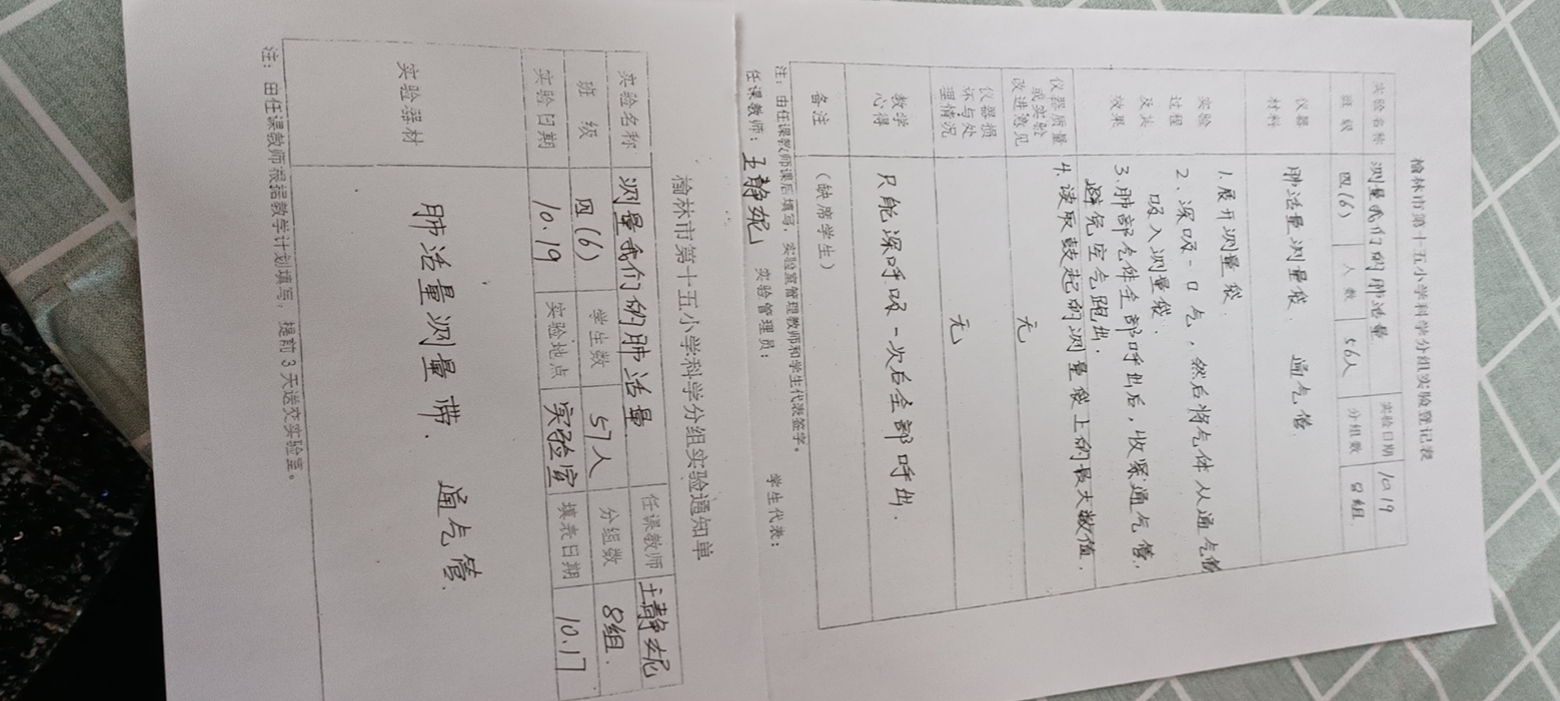 榆林市第十五小学科学分组实验登记表
实验名称 测量我们的肺活量 实验日期 10.19
班级 四(6) 人数 56人 分组数 8组.
仪器材料 肺活量测量袋. 通气管.
实验过程及其效果
1.展开测量袋.
2、深吸一口气，然后将气体从通气管
吸入测量袋.
3.肺部气体全部呼出后，收紧通气管.
避免空气跑出.
4.读取鼓起的测量袋上的最大数值.
仪器质量或实验改进意见 无
仪器损坏与处理情况 无
教学心得 只能深呼吸一次后全部呼出.
备注 （缺席学生）
注：由任课教师课后填写，实验室管理教师和学生代表签字。
任课教师：王静妮 实验管理员： 学生代表：
榆林市第十五小学科学分组实验通知单
实验名称 测量我们的肺活量 任课教师 王静妮
班级 四(6) 学生数 57人 分组数 8组.
实验日期 10.19 实验地点 实验室 填表日期 10.17
实验器材 肺活量测量带. 通气管.
注：由任课教师根据教学计划填写，提前3天送交实验室。